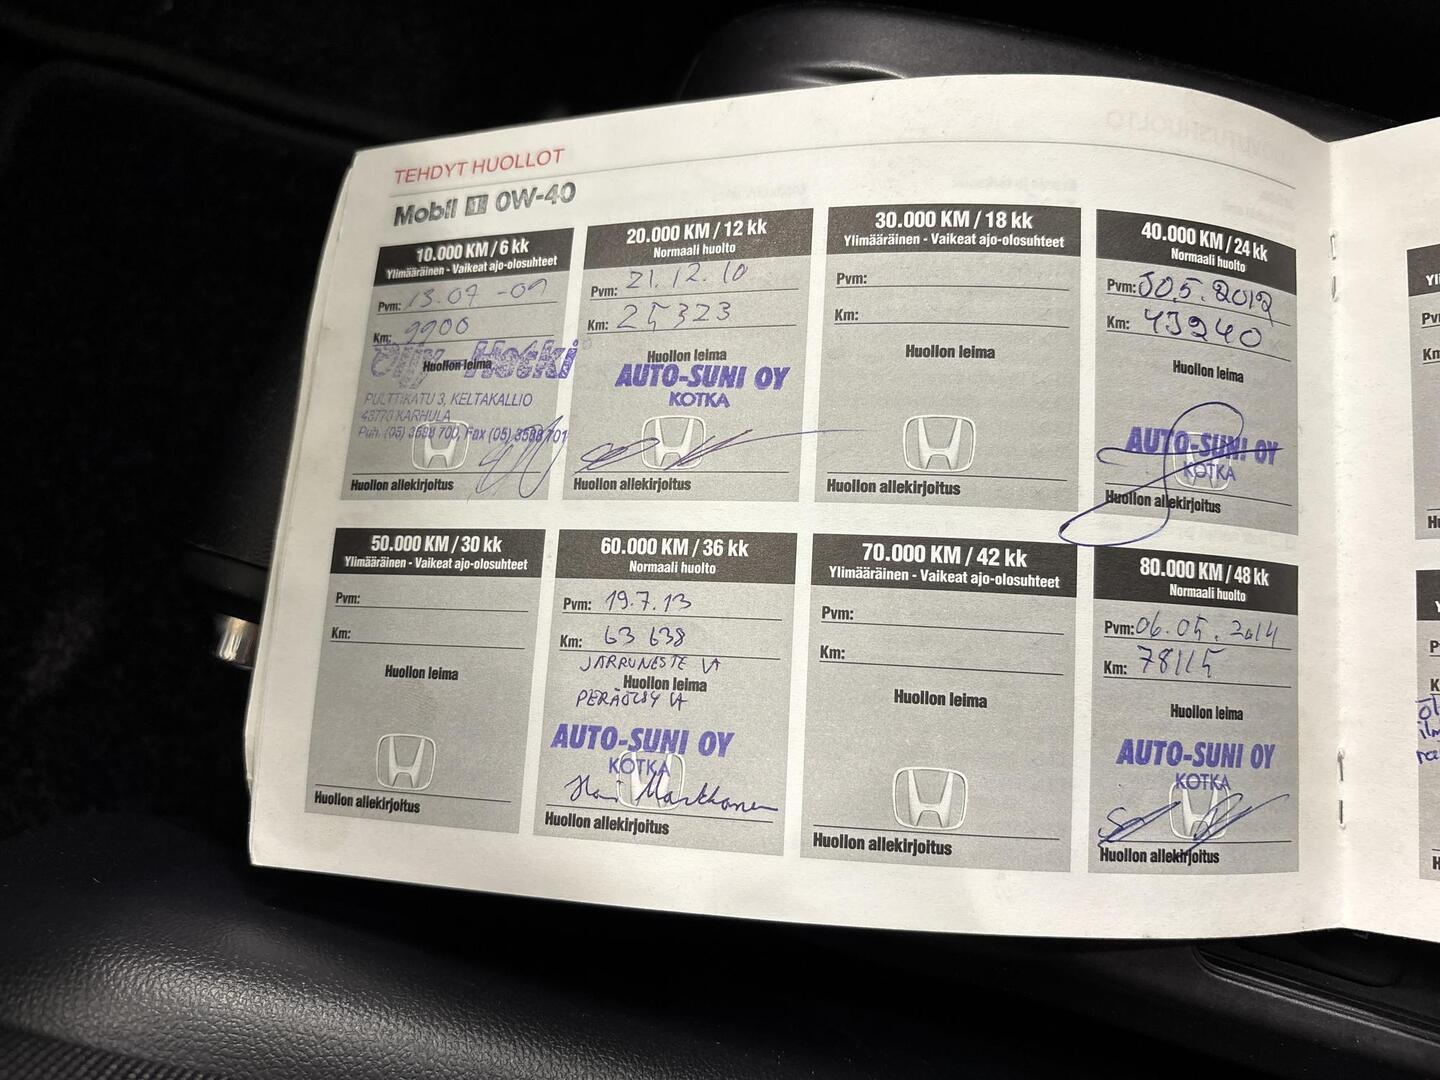 TEHDYT HUOLLOT
Mobil 1 0W-40
10.000 KM / 6 kk
Ylimääräinen - Vaikeat ajo-olosuhteet
Pvm: 13.07 -09
Km: 9900
Huollon leima
PULTTIKATU 3, KELTAKALLIO
48770 KARHULA
Puh. (05) 3588 700, Fax (05) 3588 701
Huollon allekirjoitus
20.000 KM / 12 kk
Normaali huolto
Pvm: 21.12.10
Km: 25323
Huollon leima
AUTO-SUNI OY
KOTKA
Huollon allekirjoitus
30.000 KM / 18 kk
Ylimääräinen - Vaikeat ajo-olosuhteet
Pvm:
Km:
Huollon leima
Huollon allekirjoitus
40.000 KM / 24 kk
Normaali huolto
Pvm: 30.5.2012
Km: 43240
Huollon leima
AUTO-SUNI OY
KOTKA
Huollon allekirjoitus
50.000 KM / 30 kk
Ylimääräinen - Vaikeat ajo-olosuhteet
Pvm:
Km:
Huollon leima
Huollon allekirjoitus
60.000 KM / 36 kk
Normaali huolto
Pvm: 19.7.13
Km: 63 638
JARRUNESTE
Huollon leima
AUTO-SUNI OY
KOTKA
Huollon allekirjoitus
70.000 KM / 42 kk
Ylimääräinen - Vaikeat ajo-olosuhteet
Pvm:
Km:
Huollon leima
Huollon allekirjoitus
80.000 KM / 48 kk
Normaali huolto
Pvm: 06.05.2014
Km: 78115
Huollon leima
AUTO-SUNI OY
KOTKA
Huollon allekirjoitus